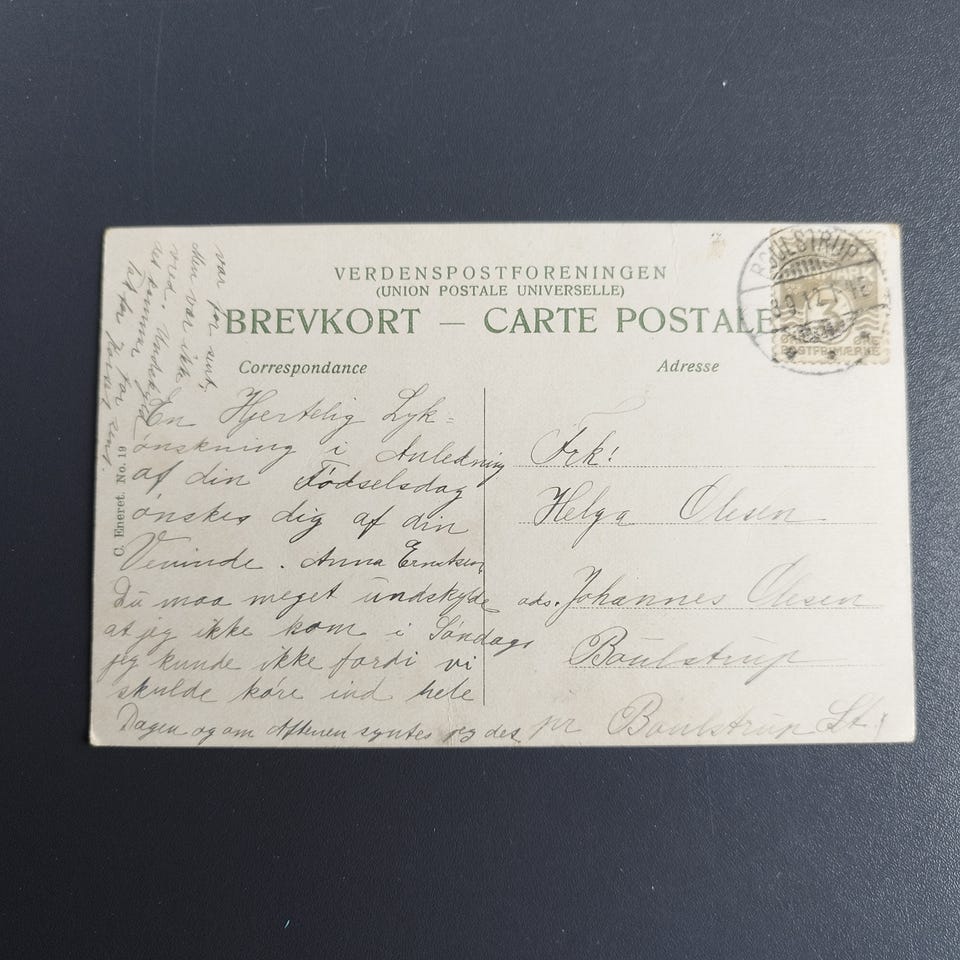 VERDENSPOSTFORENINGEN
(UNION POSTALE UNIVERSELLE)
BREVKORT — CARTE POSTALE
Correspondance
Adresse
BOULSTRUP
8.9.12
MARK
3
ØRE
POSTFRIMÆRKE
En Hjertelig Lyk=
ønskning i Anledning
af din Fødselsdag
ønskes dig af din
Veninde. Anna Ernstsen
Du maa meget undskylde
at jeg ikke kom i Søndags
jeg kunde ikke fordi vi
skulde køre ind hele
Dagen og om Aftenen syntes jeg det
var for sent,
Men var ikke
vred. Undskyld
det kommer for sent
C. Eneret. No. 19
Frk!
Helga Olesen
ads. Johannes Olesen
Boulstrup
pr Boulstrup St.